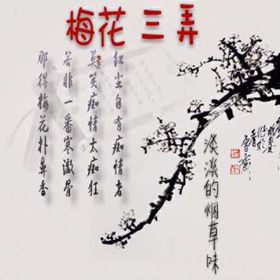 梅花三弄
红尘自有痴情者
莫笑痴情太痴狂
若非一番寒澈骨
那得梅花扑鼻香
淡淡的烟草味